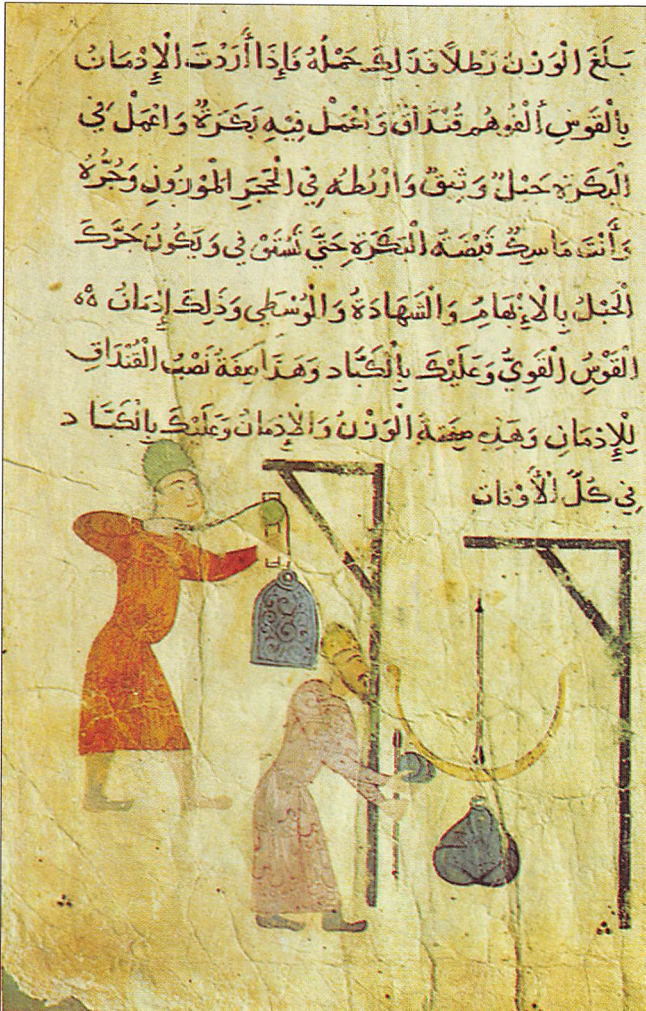 بَلَغَ الْوَزْنُ رَطْلاً فَذَلِكَ حَمْلُهُ فَإِذَا أَرَدْتَ الْإِدْمَانَ
بِالْقَوْسِ وَاعْمَلْ فِيهِ بَكَرَةٌ وَاعْمَلْ فِي
الْبَكَرَةِ حَبْلٌ وَثِيقٌ وَارْبُطْهُ فِي الْحَجَرِ الْمَوْزُونِ وَجُرَّهُ
وَأَنْتَ مَاسِكٌ قَبْضَةَ الْبَكَرَةِ حَتَّى تَسْتَوْفِي وَيَكُونُ جَرَّكَ
الْحَبْلُ بِالْإِبْهَامِ وَالشَّهَادَةُ وَالْوُسْطَى وَذَلِكَ إِدْمَانُ
الْقَوْسِ الْقَوِيِّ وَعَلَيْكَ بِالْكَبَّادِ وَهَذَا صِفَةُ نَصْبُ الْقُنْدَاقِ
لِلْإِدْمَانِ وَهَذِهِ صِفَةُ الْوَزْنُ وَالْإِدْمَانُ وَعَلَيْكَ بِالْكَبَّادِ
فِي كُلِّ الْأَوْقَاتِ